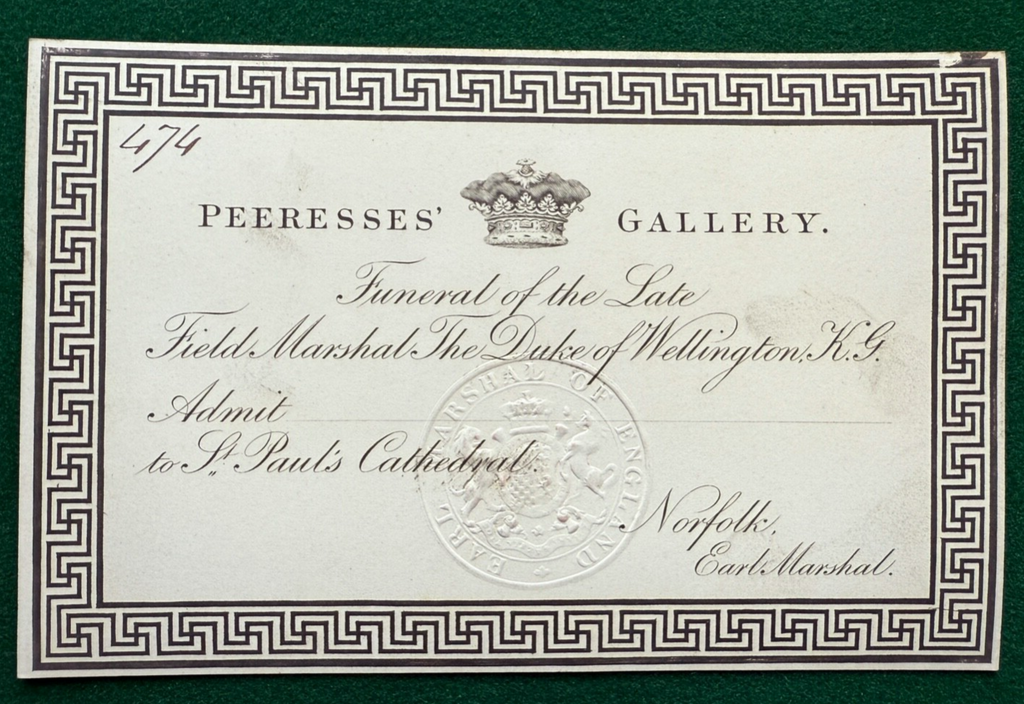 474
PEERESSES' GALLERY.
Funeral of the Late
Field Marshal The Duke of Wellington, K.G.
Admit
to St. Paul's Cathedral.
EARL MARSHAL OF ENGLAND
Norfolk,
Earl Marshal.